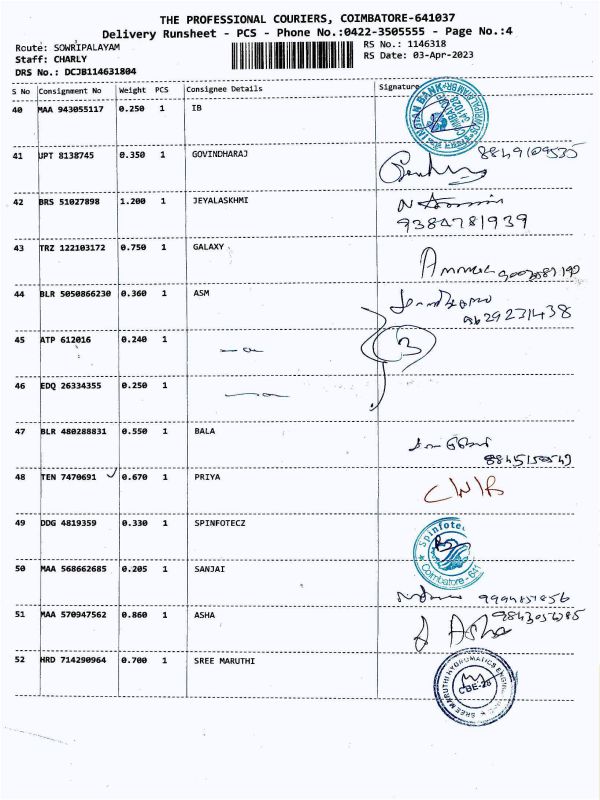 THE PROFESSIONAL COURIERS, COIMBATORE-641037
Delivery Runsheet - PCS - Phone No.:0422-3505555 - Page No.:4
Route: SOWRIPALAYAM RS No.: 1146318
Staff: CHARLY RS Date: 03-Apr-2023
DRS No.: DCJB114631804
S No Consignment No Weight PCS Consignee Details Signature
40 MAA 943055117 0.250 1 IB
INDIAN BANK
41 UPT 8138745 0.350 1 GOVINDHARAJ
42 BRS 51027898 1.200 1 JEYALASKHMI
9384781939
43 TRZ 122103172 0.750 1 GALAXY
44 BLR 5050866230 0.360 1 ASM
45 ATP 612016 0.240 1
3
46 EDQ 26334355 0.250 1
47 BLR 480288831 0.550 1 BALA
48 TEN 7470691 0.670 1 PRIYA
49 DDG 4819359 0.330 1 SPINFOTECZ
Spinfote
Coimbatore-641
50 MAA 568662685 0.205 1 SANJAI
51 MAA 570947562 0.860 1 ASHA
Asha
52 HRD 714290964 0.700 1 SREE MARUTHI
SREE MARUTHI HYDROMATICS
CBE-28